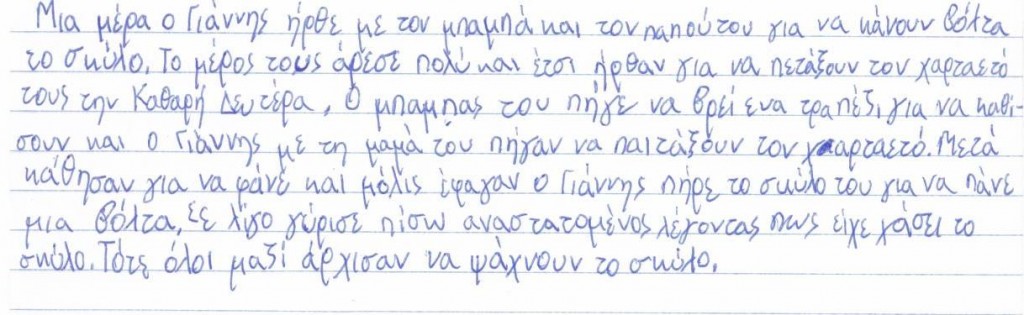 Μια μέρα ο Γιάννης ήρθε με τον μπαμπά και τον παπούτου για να κάνουν βόλτα
το σκύλο. Το μέρος τους άρεσε πολύ και έτσι ήρθαν για να πετάξουν τον χαρταετό
τους την Καθαρή Δευτέρα. Ο μπαμπας του πήγε να βρεί ενα τραπέζι για να καθί-
σουν και ο Γιάννης με τη μαμά του πήγαν να παιτάξουν τον χααρταετό. Μετά
κάθησαν για να φάνε και μόλις έφαγαν ο Γιάννης πήρε το σκύλο του για να πάνε
μια βόλτα, σε λίγο γύρισε πίσω αναστατομένος λέγοντας πως είχε χάσει το
σκύλο. Τότε όλοι μαζί άρχισαν να ψάχνουν το σκύλο.